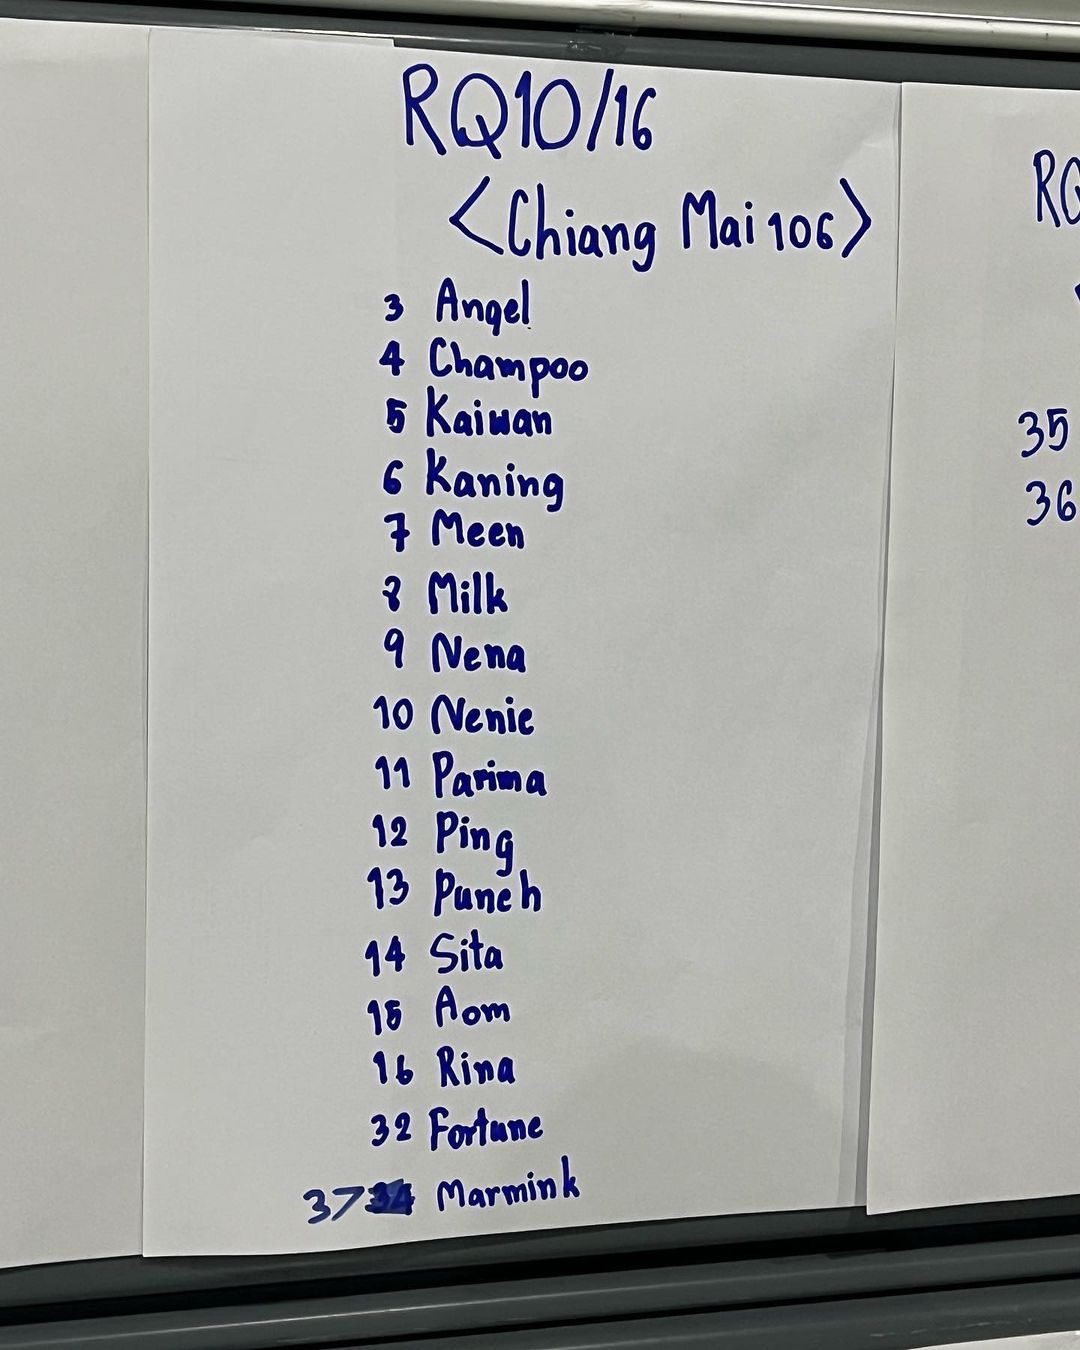 RQ10/16
<Chiang Mai 106>
3 Angel
4 Champoo
5 Kaiwan
6 Kaning
7 Meen
8 Milk
9 Nena
10 Nenie
11 Parima
12 Ping
13 Punch
14 Sita
15 Aom
16 Rina
32 Fortune
37 Marmink
RQ
35
36